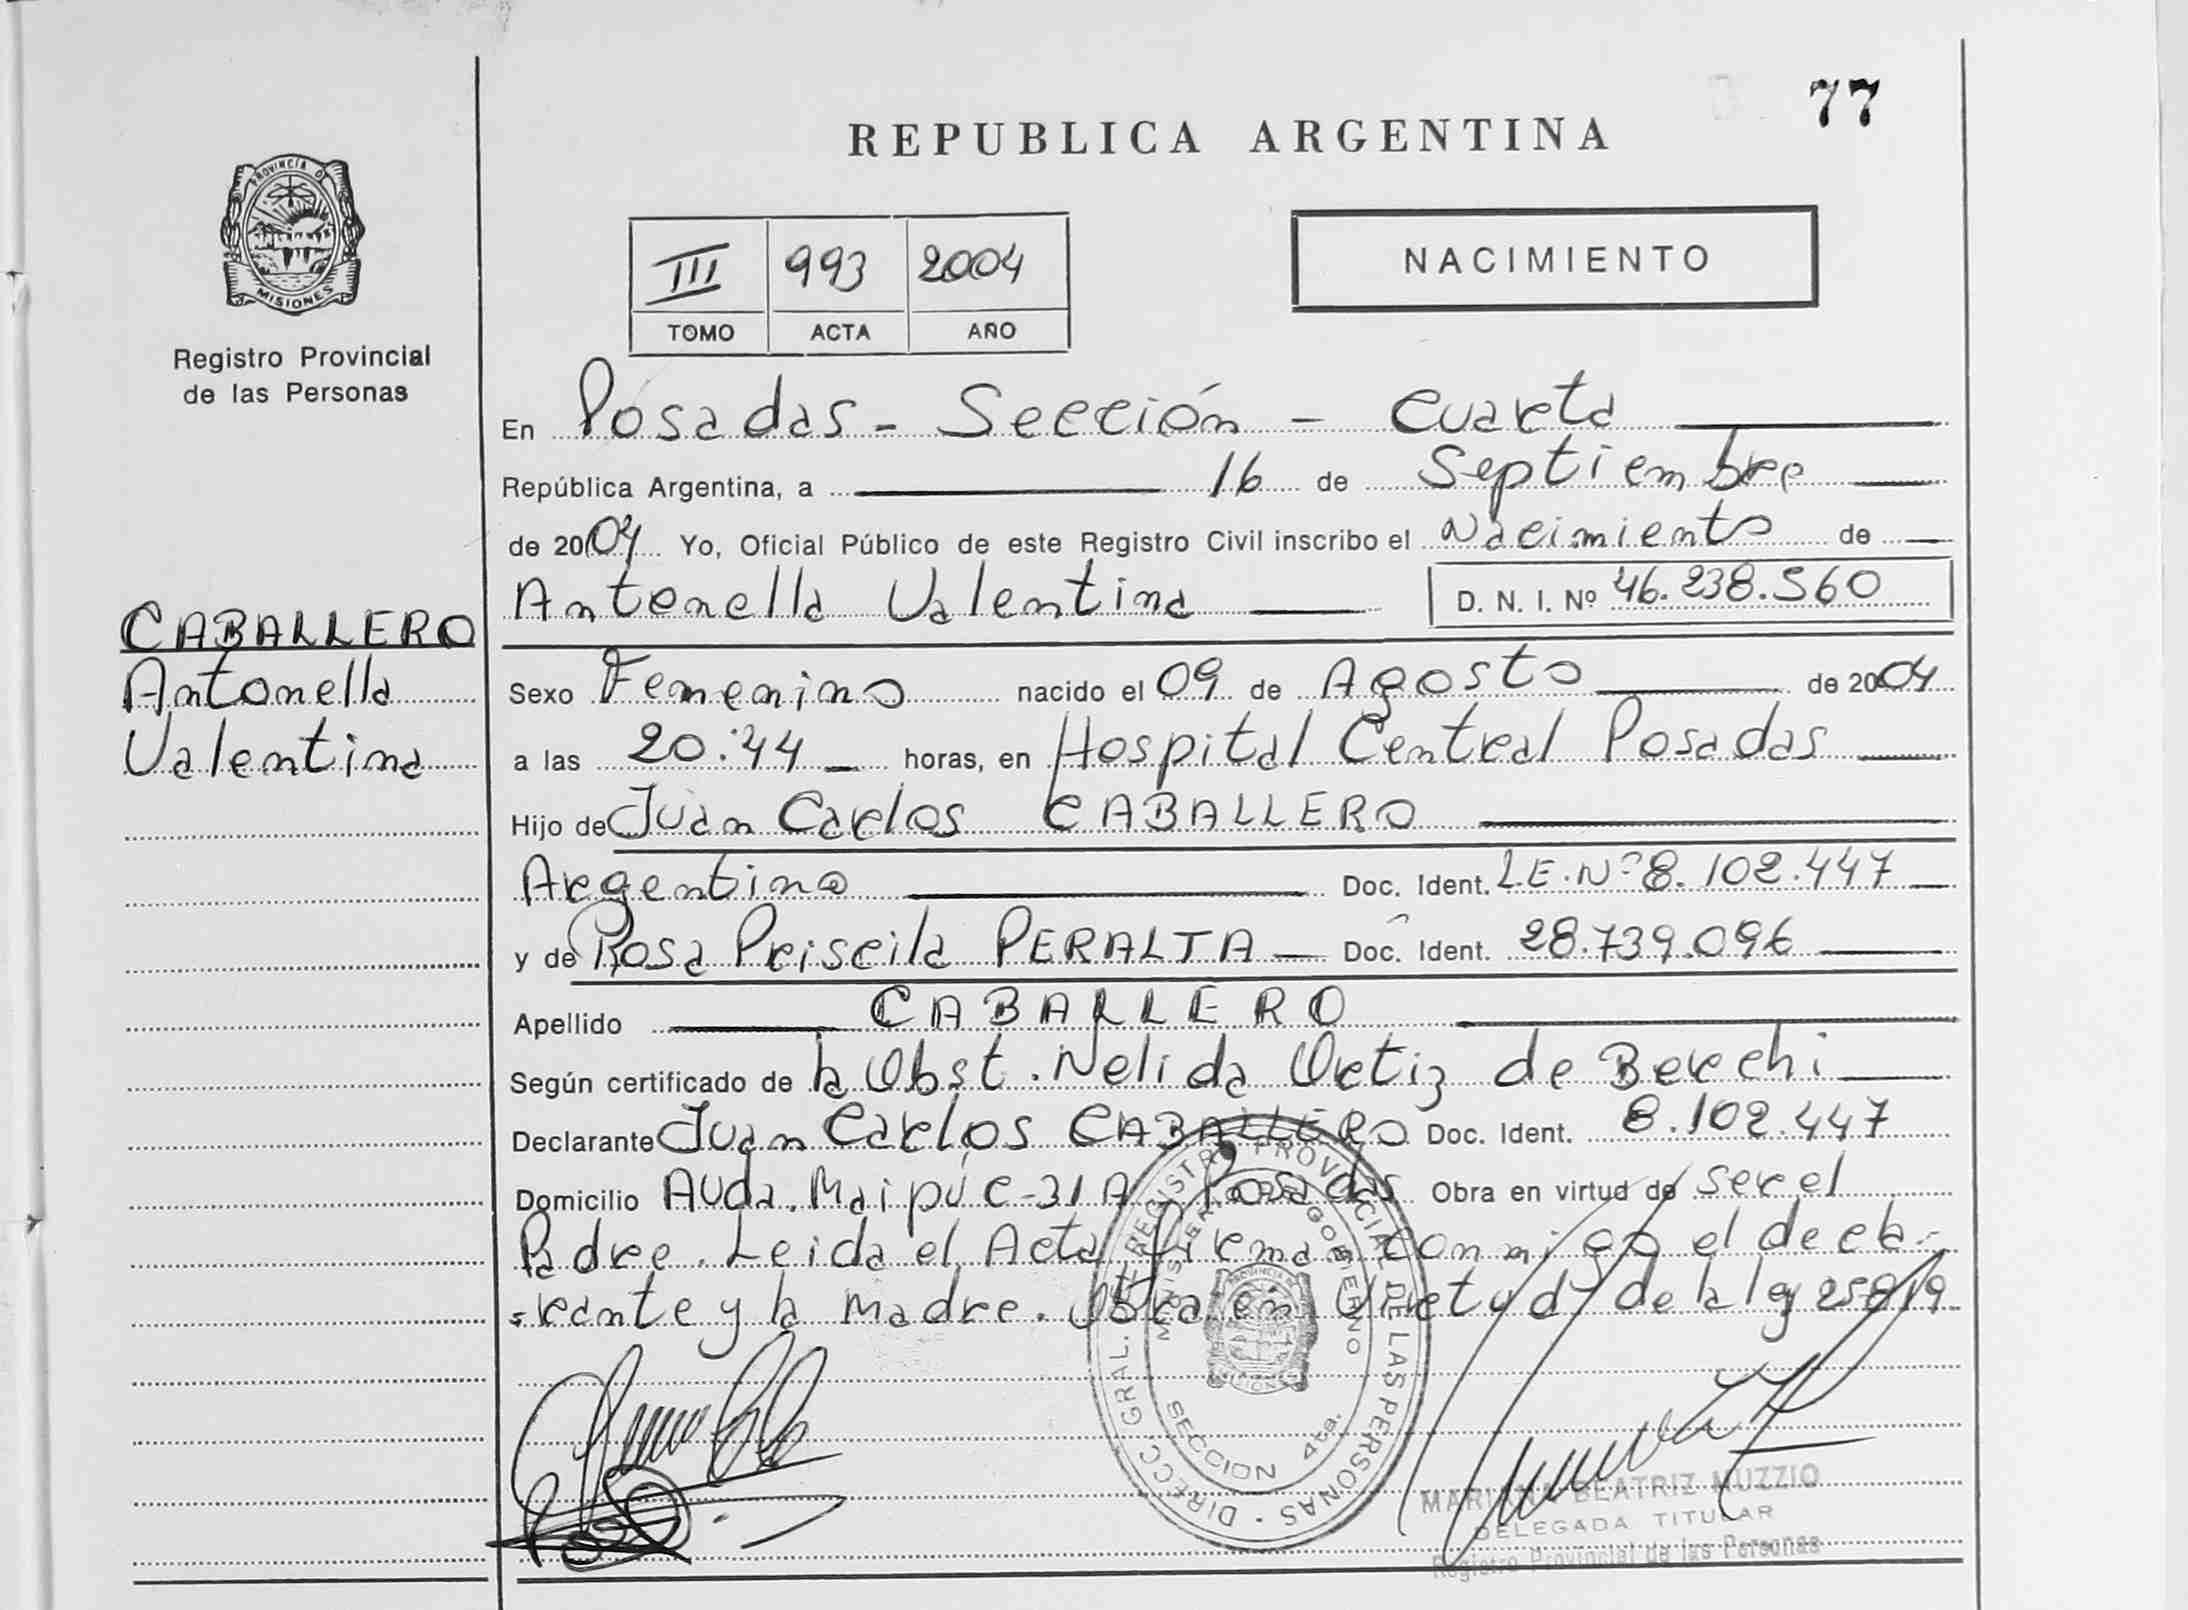 77
REPUBLICA ARGENTINA
PROVINCIA DE
MISIONES
Registro Provincial
de las Personas
III 993 2004
TOMO ACTA AÑO
NACIMIENTO
En Posadas - Sección - Cuarta
República Argentina, a 16 de Septiembre
de 2004 Yo, Oficial Público de este Registro Civil inscribo el Nacimiento de
Antonella Valentina D. N. I. Nº 46.238.560
CABALLERO
Antonella
Valentina
Sexo Femenino nacido el 09 de Agosto de 2004
a las 20:44 horas, en Hospital Central Posadas
Hijo de Juan Carlos CABALLERO
Argentino Doc. Ident. L.E. Nº 8.102.447
y de Rosa Priscila PERALTA Doc. Ident. 28.739.096
Apellido CABALLERO
Según certificado de la Obst. Nelida Ortiz de Berchi
Declarante Juan Carlos CABALLERO Doc. Ident. 8.102.447
Domicilio Avda. Maipú C-31 A Posadas Obra en virtud de ser el
Padre. Leida el Acta firman conmigo el decla-
rante y la madre. Obra en Virtud de la ley 25819
DIRECC. GRAL. DE REGISTRO PROVINCIAL DE LAS PERSONAS
MINISTERIO DE GOBIERNO
SECCION 4ta.
MARIANA BEATRIZ MUZZIO
DELEGADA TITULAR
Registro Provincial de las Personas